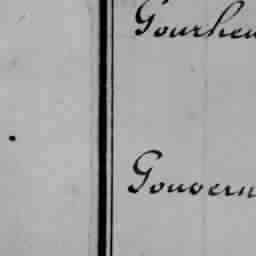 Gourhen
Gouvern